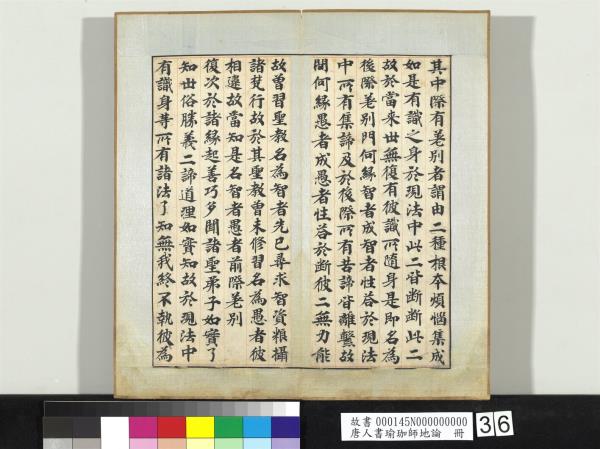 其中際有差別者謂由二種根本煩惱集成
如是有識之身於現法中此二皆斷斷此二
故於當來世無復有彼識所隨身是即名為
後際差別門何緣智者成智者性答於現法
中所有集諦及於後際所有苦諦皆離繫故
問何緣愚者成愚者性答於斷彼二無力能
故曾習聖教名為智者先已尋求智資糧攝
諸梵行故於其聖教曾未修習名為愚者彼
相違故當知是名智者愚者前際差別
復次於諸緣起善巧多聞諸聖弟子如實了
知世俗勝義二諦道理如實知故於現法中
有識身等所有諸法了知無我終不執彼為
故書 000145N000000000
唐人書瑜珈師地論 冊
36